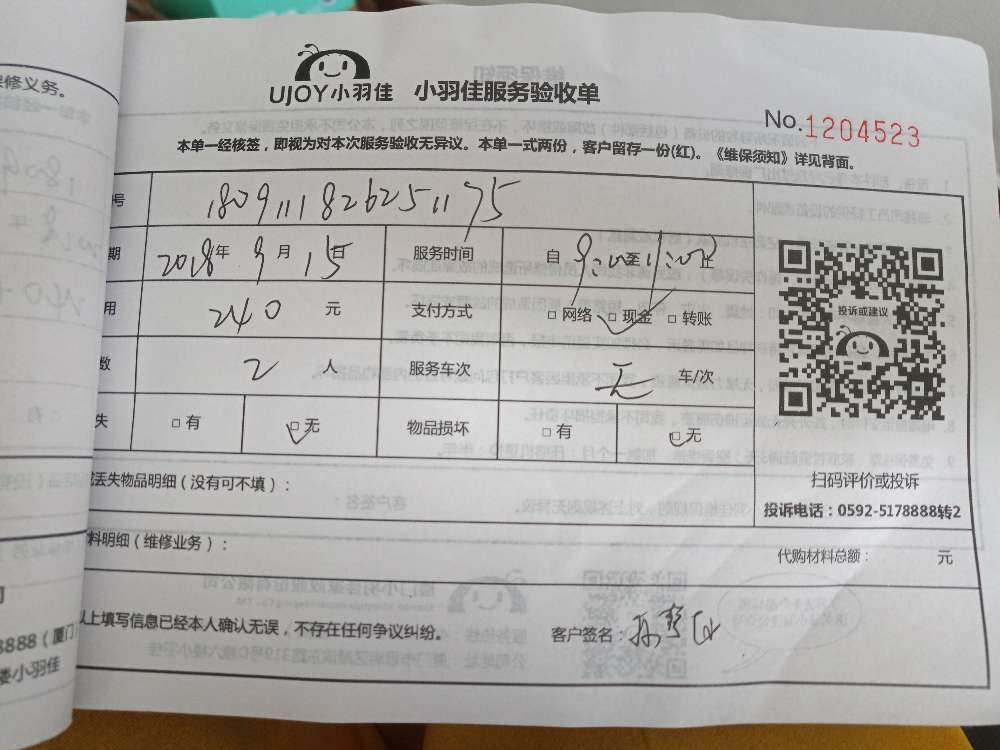 修义务。
UJOY小羽佳 小羽佳服务验收单
No.1204523
本单一经核签，即视为对本次服务验收无异议。本单一式两份，客户留存一份(红)。《维保须知》详见背面。
号 1809111826251175
期 2018年9月15日 服务时间 自9:00至11:00止
用 240 元 支付方式 □网络 □现金 □转账
投诉或建议
数 2 人 服务车次 无 车/次
失 □有 □无 物品损坏 □有 □无
扫码评价或投诉
投诉电话：0592-5178888转2
丢失物品明细（没有可不填）：
料明细（维修业务）： 代购材料总额： 元
以上填写信息已经本人确认无误，不存在任何争议纠纷。 客户签名：
8888（厦门
楼小羽佳